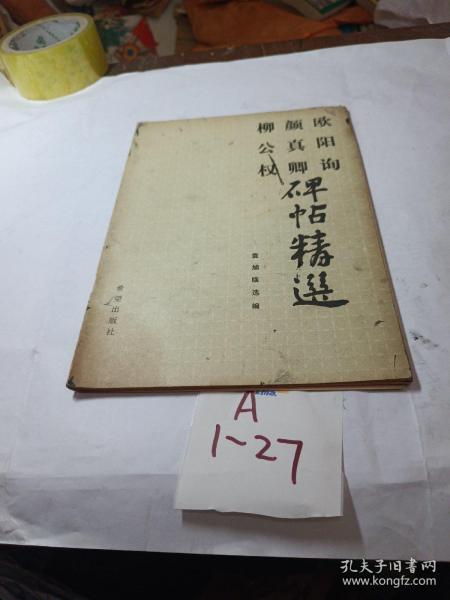 欧阳询
颜真卿
柳公权
碑帖精選
袁旭临选编
希望出版社
A
1~27
孔夫子旧书网
www.kongfz.com